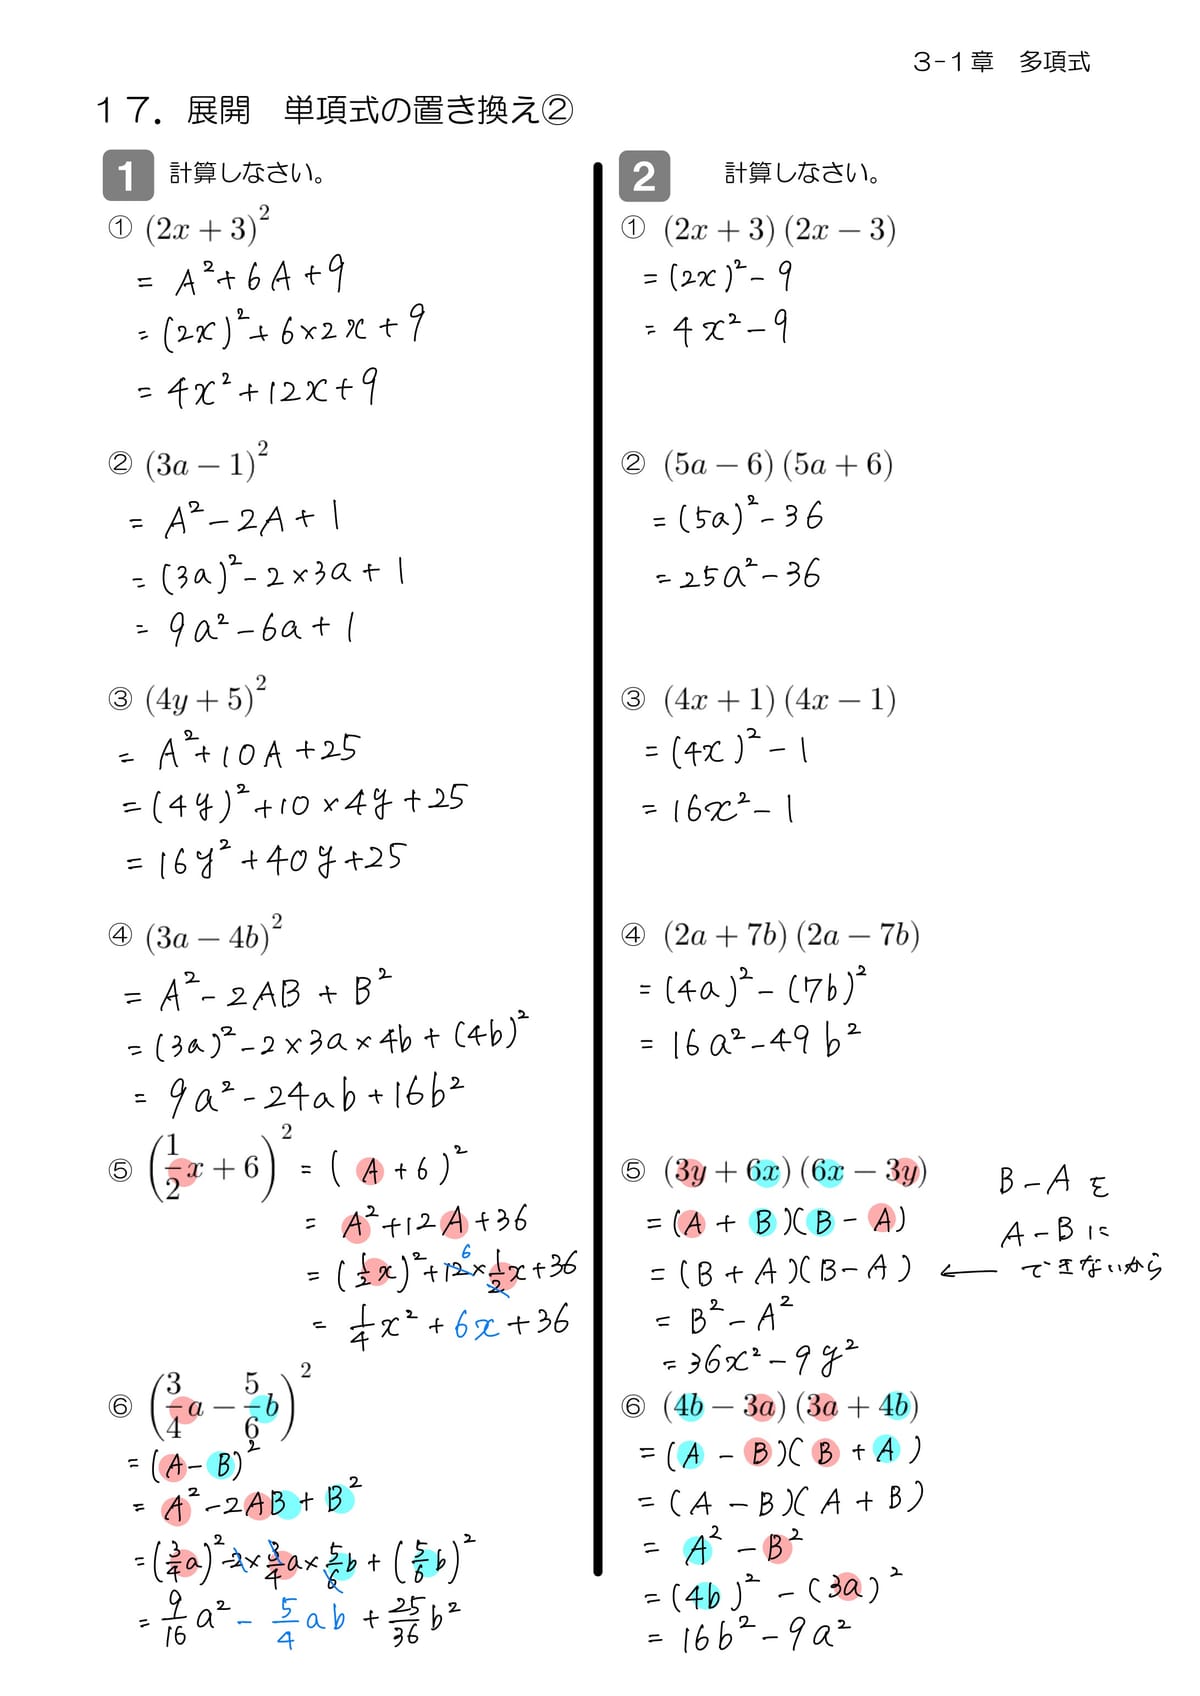 3-1章　多項式
17. 展開　単項式の置き換え②
1 計算しなさい。
① (2x + 3)²
= A² + 6A + 9
= (2x)² + 6×2x + 9
= 4x² + 12x + 9
② (3a − 1)²
= A² − 2A + 1
= (3a)² − 2×3a + 1
= 9a² − 6a + 1
③ (4y + 5)²
= A² + 10A + 25
= (4y)² + 10×4y + 25
= 16y² + 40y + 25
④ (3a − 4b)²
= A² − 2AB + B²
= (3a)² − 2×3a×4b + (4b)²
= 9a² − 24ab + 16b²
⑤ (1/2 x + 6)² = (A + 6)²
= A² + 12A + 36
= (1/2 x)² + 12 6 × 1/2 x + 36
= 1/4 x² + 6x + 36
⑥ (3/4 a − 5/6 b)²
= (A − B)²
= A² − 2AB + B²
= (3/4 a)² − 2×3/4 a×5/6 b + (5/6 b)²
= 9/16 a² − 5/4 ab + 25/36 b²
2 計算しなさい。
① (2x + 3)(2x − 3)
= (2x)² − 9
= 4x² − 9
② (5a − 6)(5a + 6)
= (5a)² − 36
= 25a² − 36
③ (4x + 1)(4x − 1)
= (4x)² − 1
= 16x² − 1
④ (2a + 7b)(2a − 7b)
= (4a)² − (7b)²
= 16a² − 49b²
⑤ (3y + 6x)(6x − 3y)
= (A + B)(B − A)
= (B + A)(B − A) ←
B − A を
A − B に
できないから
= B² − A²
= 36x² − 9y²
⑥ (4b − 3a)(3a + 4b)
= (A − B)(B + A)
= (A − B)(A + B)
= A² − B²
= (4b)² − (3a)²
= 16b² − 9a²